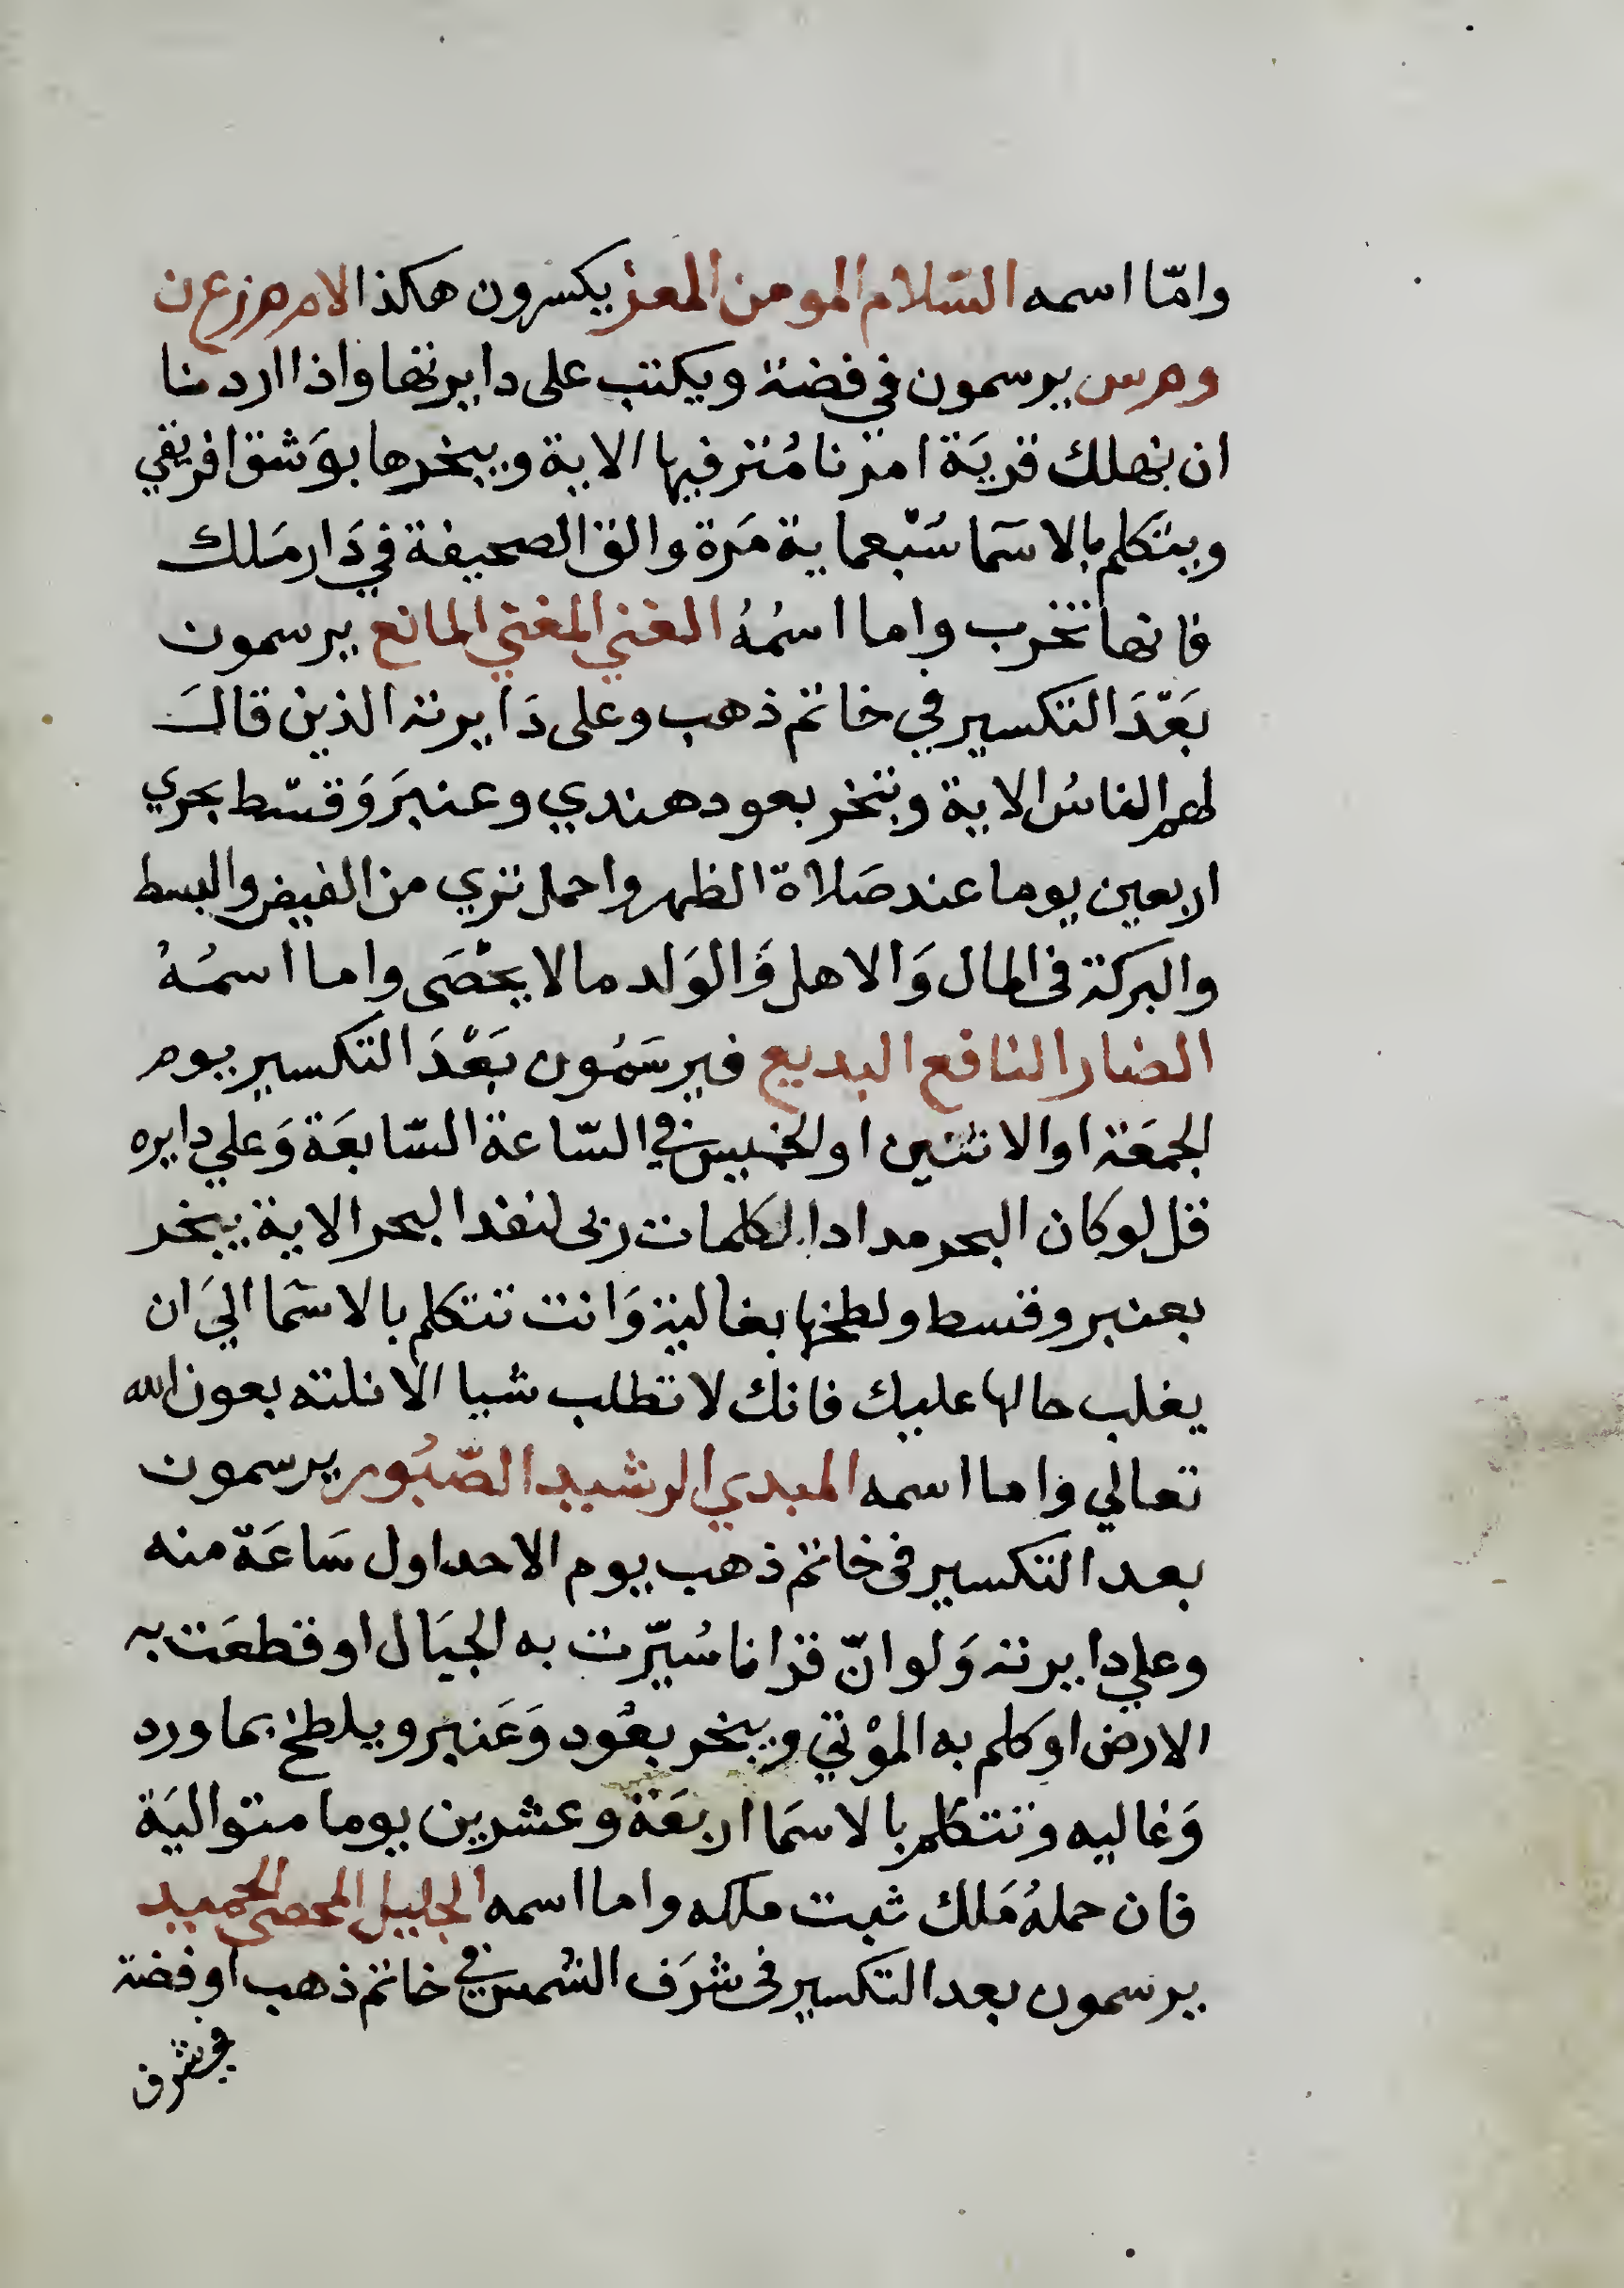 وامّا اسمه السّلام المومن المعز يكسرون هكذا الا م م ز ع ن
و م س يرسمون في فضة ويكتب على دايرتها واذا اردنا
ان نهلك قريَة امرنا مُترفيها الاية ويبخرها بوَشق افريقي
ويتكلم بالاسَما سُبْعماية مَرة والق الصحيفة في دَار مَلك
فانها تخرب واما اسمُهُ الغني المغني المانع يرسمون
بَعّدَ التكسير في خاتم ذهب وعلى دَايرته الذين قالَ
لهم الناسُ الاية وتبخر بعود هندي وعنبرَ وَقسّط بحري
اربعين يوما عند صَلاة الظهر واحمل تري من الفيض والبسط
والبركة فى المال وَالاهل وَالوَلد مالا يحْصَى واما اسمُهُ
الضار النافع البديع فيرسَمُون بَعْدَ التكسير يوم
الجمعَة او الاثنين او الخميس في السّاعة السّابعَة وَعلي دايره
قل لو كان البحر مدادا لكلمات ربى لنفد البحر الاية يبخر
بعنبر وقسط ولطخها بغالية وَانت تتكلم بالاسَما اليَ ان
يغلب حالها عليك فانك لا تطلب شيا الا نلته بعون الله
تعالي واما اسمه المبدي الرشيد الصّبُور يرسمون
بعد التكسير فى خاتم ذهب يوم الاحد اول سَاعَة منه
وعلي دايرته وَلو انّ قرانا سُيّرت به الجبَال او قطعَت به
الارض او كلم به الموْتي ويبخر بعُود وَعَنبر ويلطخ بماورد
وَغاليه وتتكلم بالاسَما اربعَة وعشرين يوما متواليَة
فان حملهُ مَلك ثبت ملكه واما اسمه الجليل المحصى الحميد
يرسمون بعد التكسير فى شرَف الشمس في خاتم ذهب او فضة
في شرف